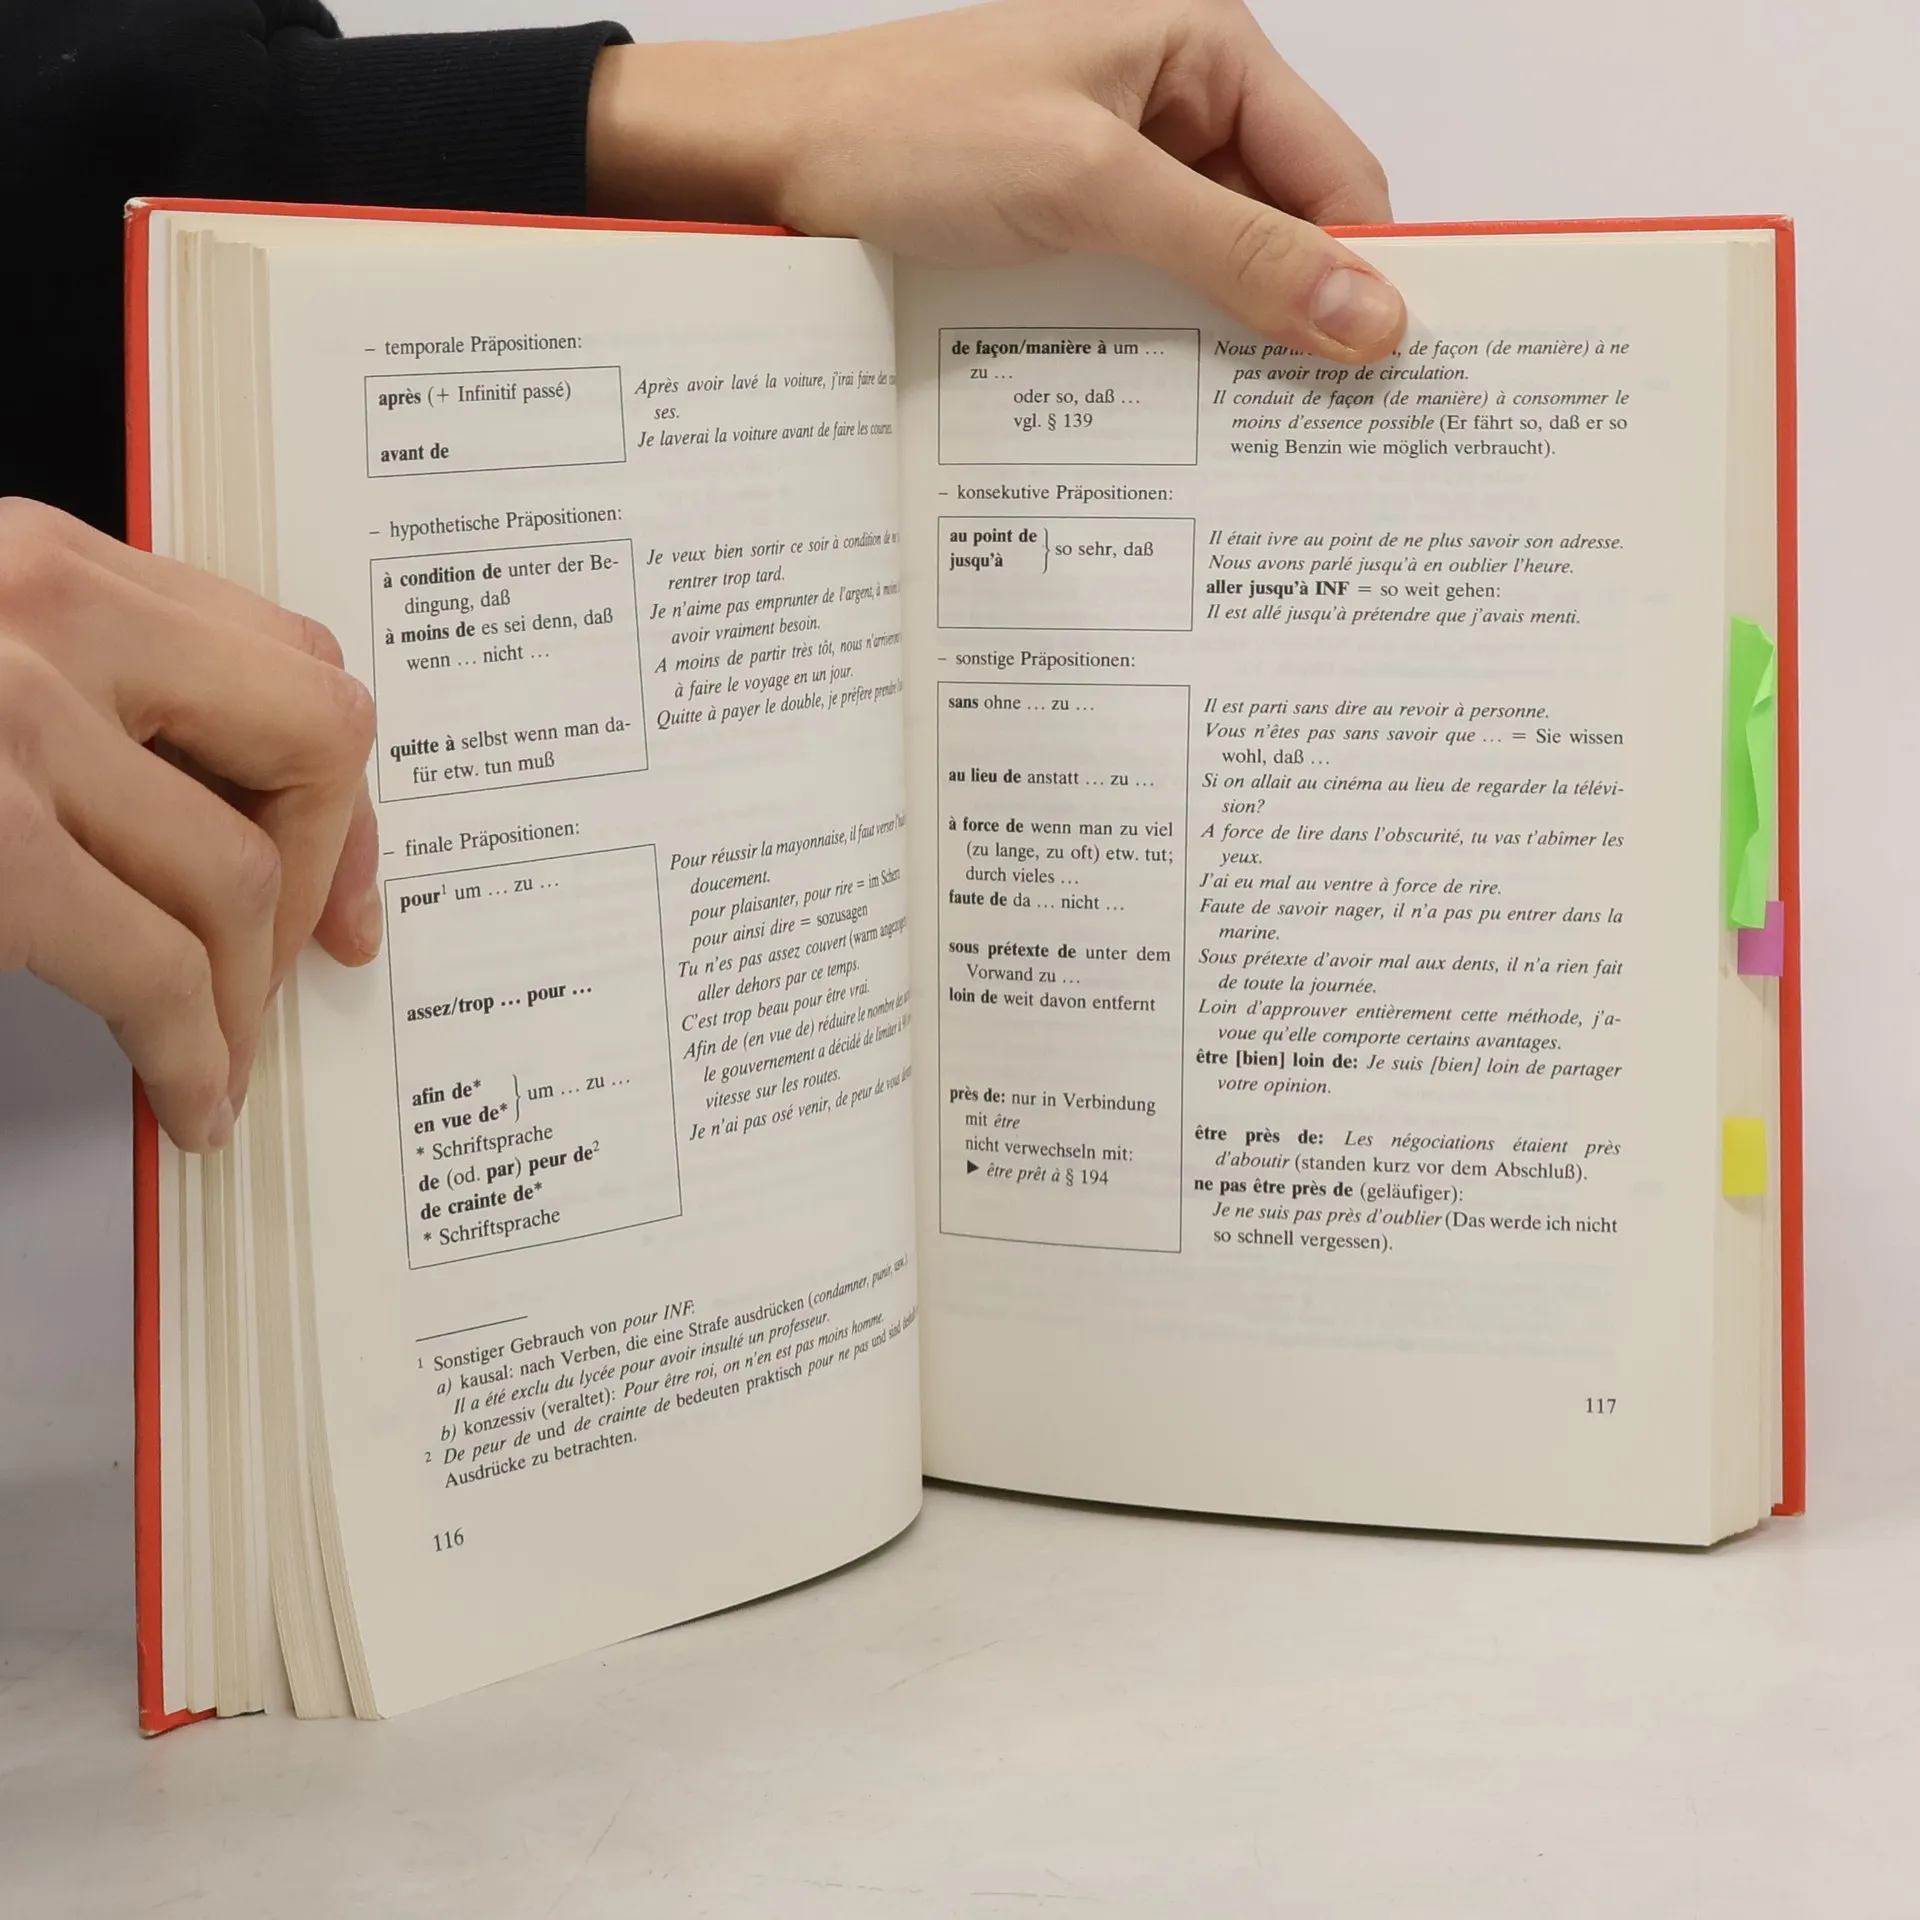 – temporale Präpositionen:
après (+ Infinitif passé)
avant de
Après avoir lavé la voiture, j'irai faire des
ses.
Je laverai la voiture avant de faire les courses.
– hypothetische Präpositionen:
à condition de unter der Be-
dingung, daß
à moins de es sei denn, daß
wenn ... nicht ...
quitte à selbst wenn man da-
für etw. tun muß
Je veux bien sortir ce soir à condition de
rentrer trop tard.
Je n'aime pas emprunter de l'argent, à moins
avoir vraiment besoin.
A moins de partir très tôt, nous n'arriverons
à faire le voyage en un jour.
Quitte à payer le double, je préfère prendre
– finale Präpositionen:
pour¹ um ... zu ...
assez/trop ... pour ...
afin de*
en vue de* } um ... zu ...
* Schriftsprache
de (od. par) peur de²
de crainte de*
* Schriftsprache
Pour réussir la mayonnaise, il faut verser
doucement.
pour plaisanter, pour rire = im Scherz
pour ainsi dire = sozusagen
Tu n'es pas assez couvert (warm
aller dehors par ce temps.
C'est trop beau pour être vrai.
Afin de (en vue de) réduire le nombre des
le gouvernement a décidé de limiter à
vitesse sur les routes.
Je n'ai pas osé venir, de peur de vous
1 Sonstiger Gebrauch von pour INF:
a) kausal: nach Verben, die eine Strafe ausdrücken (condamner, punir, usw.)
Il a été exclu du lycée pour avoir insulté un professeur.
b) konzessiv (veraltet): Pour être roi, on n'en est pas moins homme.
2 De peur de und de crainte de bedeuten praktisch pour ne pas und sind
Ausdrücke zu betrachten.
116
de façon/manière à um ...
zu ...
oder so, daß ...
vgl. § 139
Nous , de façon (de manière) à ne
pas avoir trop de circulation.
Il conduit de façon (de manière) à consommer le
moins d'essence possible (Er fährt so, daß er so
wenig Benzin wie möglich verbraucht).
– konsekutive Präpositionen:
au point de
jusqu'à } so sehr, daß
Il était ivre au point de ne plus savoir son adresse.
Nous avons parlé jusqu'à en oublier l'heure.
aller jusqu'à INF = so weit gehen:
Il est allé jusqu'à prétendre que j'avais menti.
– sonstige Präpositionen:
sans ohne ... zu ...
au lieu de anstatt ... zu ...
à force de wenn man zu viel
(zu lange, zu oft) etw. tut;
durch vieles ...
faute de da ... nicht ...
sous prétexte de unter dem
Vorwand zu ...
loin de weit davon entfernt
près de: nur in Verbindung
mit être
nicht verwechseln mit:
▶ être prêt à § 194
Il est parti sans dire au revoir à personne.
Vous n'êtes pas sans savoir que ... = Sie wissen
wohl, daß ...
Si on allait au cinéma au lieu de regarder la télévi-
sion?
A force de lire dans l'obscurité, tu vas t'abîmer les
yeux.
J'ai eu mal au ventre à force de rire.
Faute de savoir nager, il n'a pas pu entrer dans la
marine.
Sous prétexte d'avoir mal aux dents, il n'a rien fait
de toute la journée.
Loin d'approuver entièrement cette méthode, j'a-
voue qu'elle comporte certains avantages.
être [bien] loin de: Je suis [bien] loin de partager
votre opinion.
être près de: Les négociations étaient près
d'aboutir (standen kurz vor dem Abschluß).
ne pas être près de (geläufiger):
Je ne suis pas près d'oublier (Das werde ich nicht
so schnell vergessen).
117